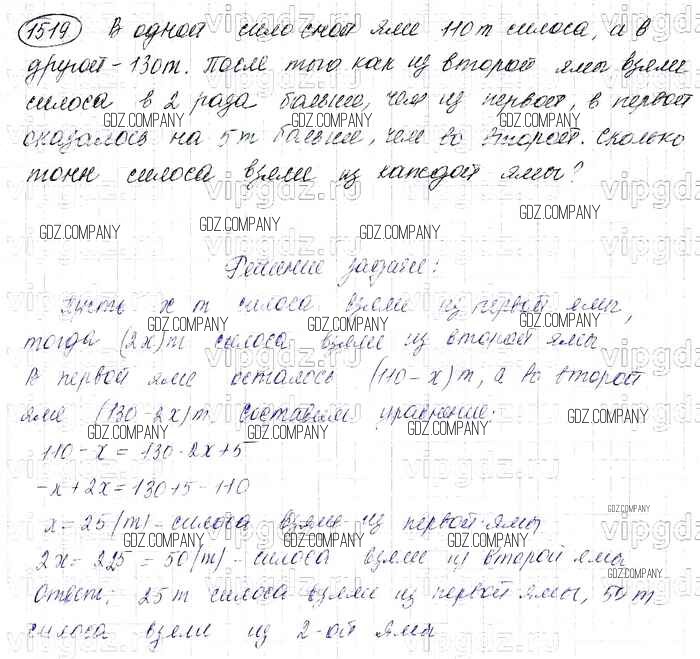 1519 В одной силосной яме 110 т силоса, а в
другой - 130 т. После того как из второй ямы взяли
силоса в 2 раза больше, чем из первой, в первой
оказалось на 5 т больше, чем во второй. Сколько
тонн силоса взяли из каждой ямы?
Решение задачи:
Пусть x т силоса взяли из первой ямы,
тогда (2x) т силоса взяли из второй ямы
В первой яме осталось (110-x) т, а во второй
яме (130-2x) т. Составим уравнение:
110-x = 130-2x+5
-x+2x=130+5-110
x=25(т)-силоса взяли из первой ямы
2x=2·25=50(т)-силоса взяли из второй ямы
Ответ: 25 т силоса взяли из первой ямы, 50 т
силоса взяли из 2-ой ямы